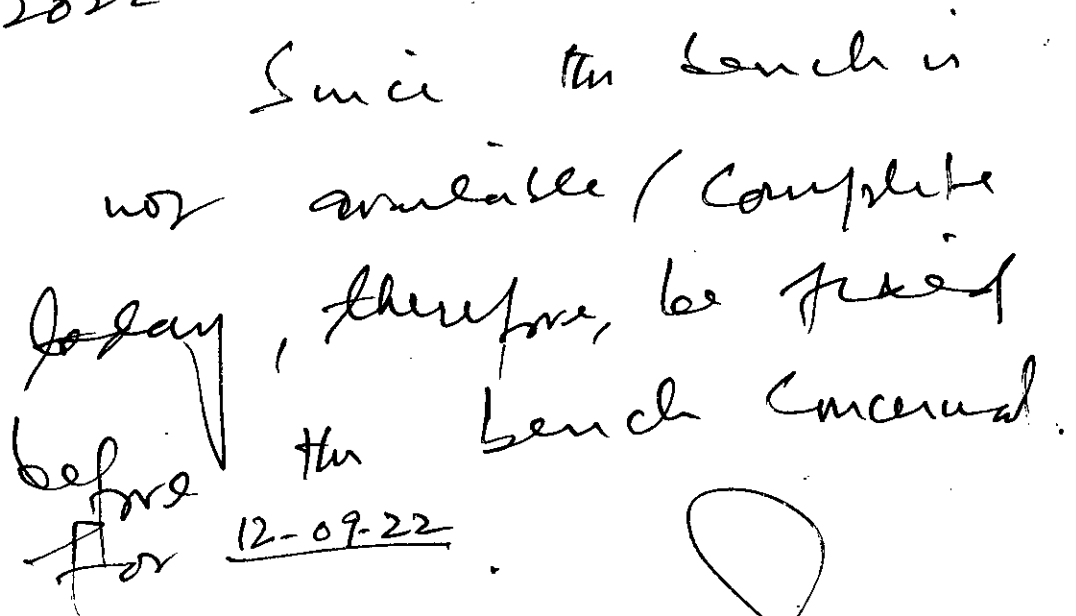 Since the bench is
not available / Complete
today, therefore, be fixed
before the bench concerned.
For 12-09-22.